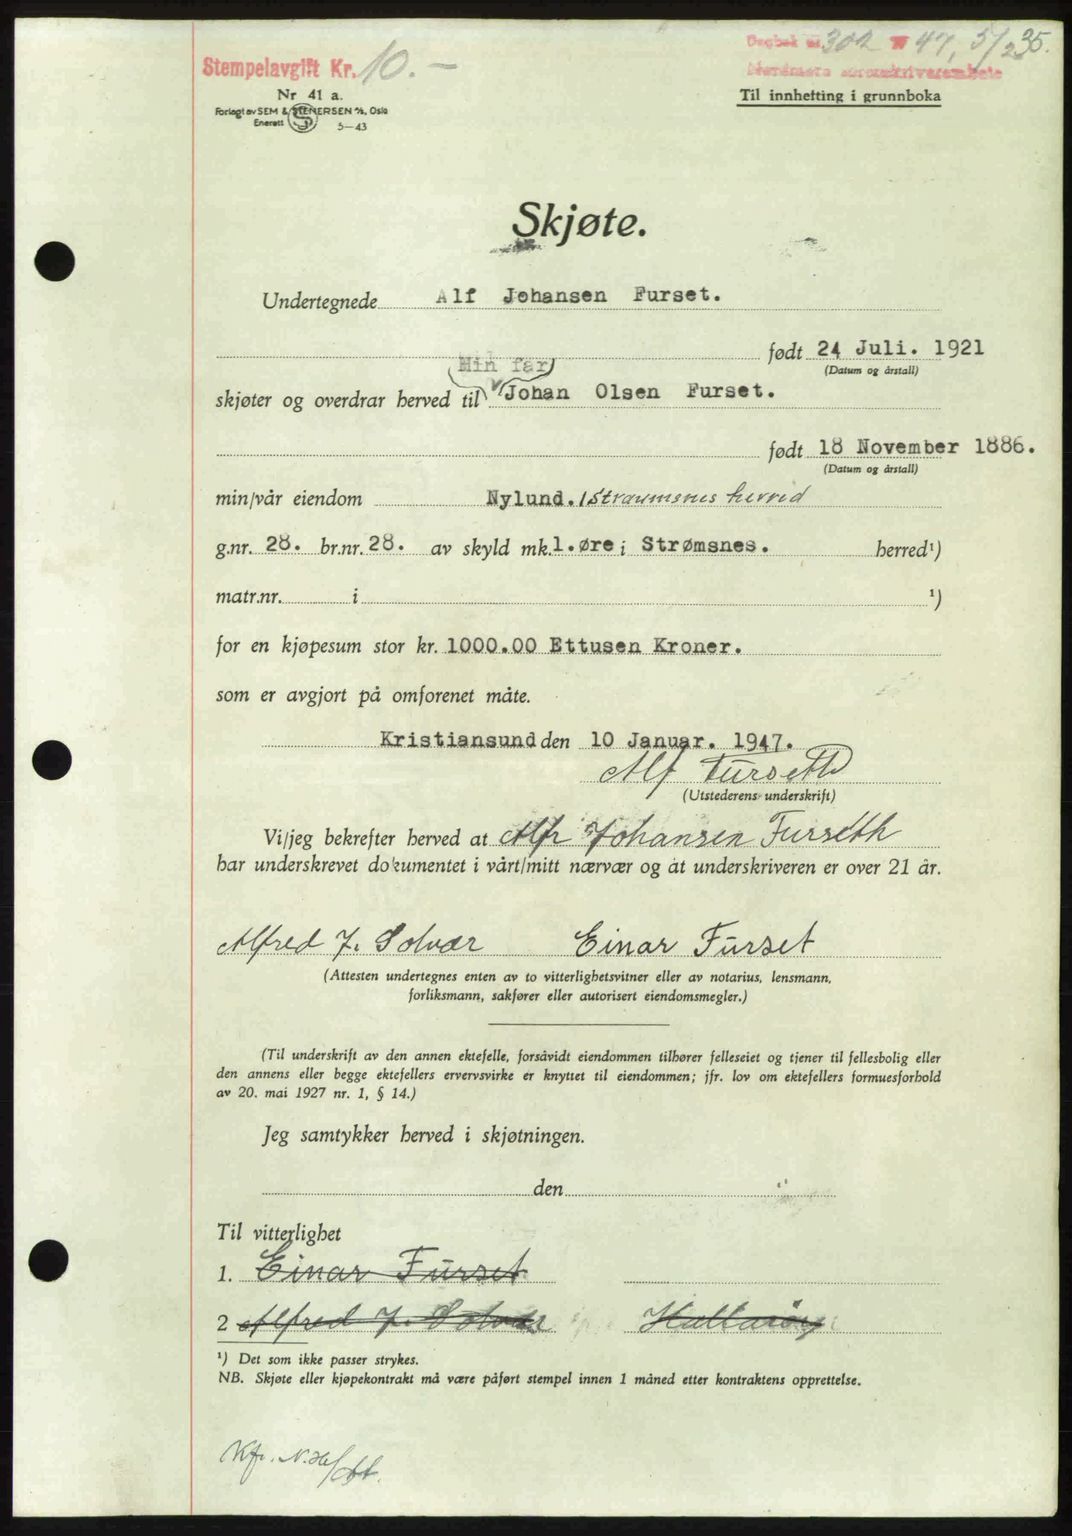 Stempelavgift Kr. 10.—
Dagbok nr. 302 47, 5/2 35.
Nordmøre sorenskriverembete
Nr 41 a.
Forlagt av SEM & STENERSEN A/S, Oslo
Enerett S 5—43
Til innhefting i grunnboka
Skjøte.
Undertegnede Alf Johansen Furset.
født 24 Juli. 1921
(Datum og årstall)
Min far
skjøter og overdrar herved til Johan Olsen Furset.
født 18 November 1886.
(Datum og årstall)
min/vår eiendom Nylund. i Straumsnes herred
g.nr. 28. br.nr. 28. av skyld mk. 1. øre i Strømsnes. herred¹)
matr.nr. i ¹)
for en kjøpesum stor kr. 1000.00 Ettusen Kroner.
som er avgjort på omforenet måte.
Kristiansund den 10 Januar. 1947.
Alf Furseth
(Utstederens underskrift)
Vi/jeg bekrefter herved at Alf Johansen Furseth
har underskrevet dokumentet i vårt/mitt nærvær og at underskriveren er over 21 år.
Alfred J. Solvær Einar Furset
(Attesten undertegnes enten av to vitterlighetsvitner eller av notarius, lensmann,
forliksmann, sakfører eller autorisert eiendomsmegler.)
(Til underskrift av den annen ektefelle, forsåvidt eiendommen tilhører felleseiet og tjener til fellesbolig eller
den annens eller begge ektefellers ervervsvirke er knyttet til eiendommen; jfr. lov om ektefellers formuesforhold
av 20. mai 1927 nr. 1, § 14.)
Jeg samtykker herved i skjøtningen.
den
Til vitterlighet
1. Einar Furset
2 Alfred J. Solvær
¹) Det som ikke passer strykes.
NB. Skjøte eller kjøpekontrakt må være påført stempel innen 1 måned etter kontraktens opprettelse.